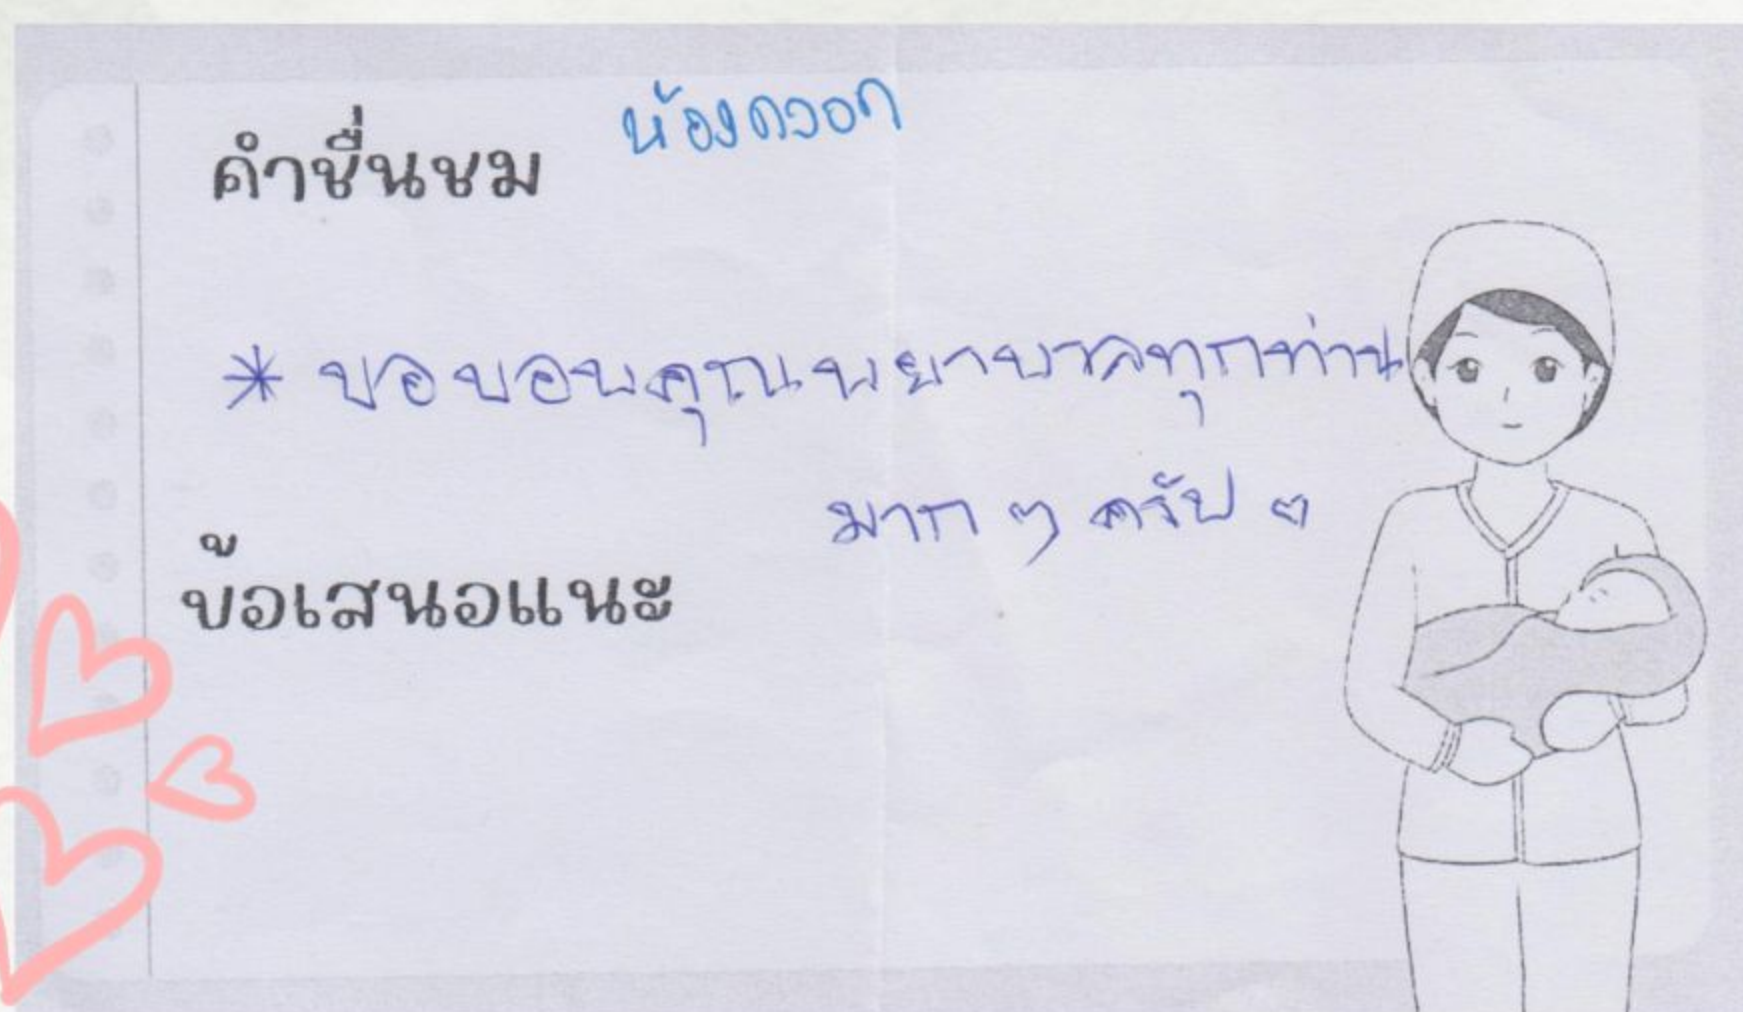 คำชื่นชม ห้องคลอด
* ขอขอบคุณพยาบาลทุกท่าน
มาก ๆ ครับ
ข้อเสนอแนะ